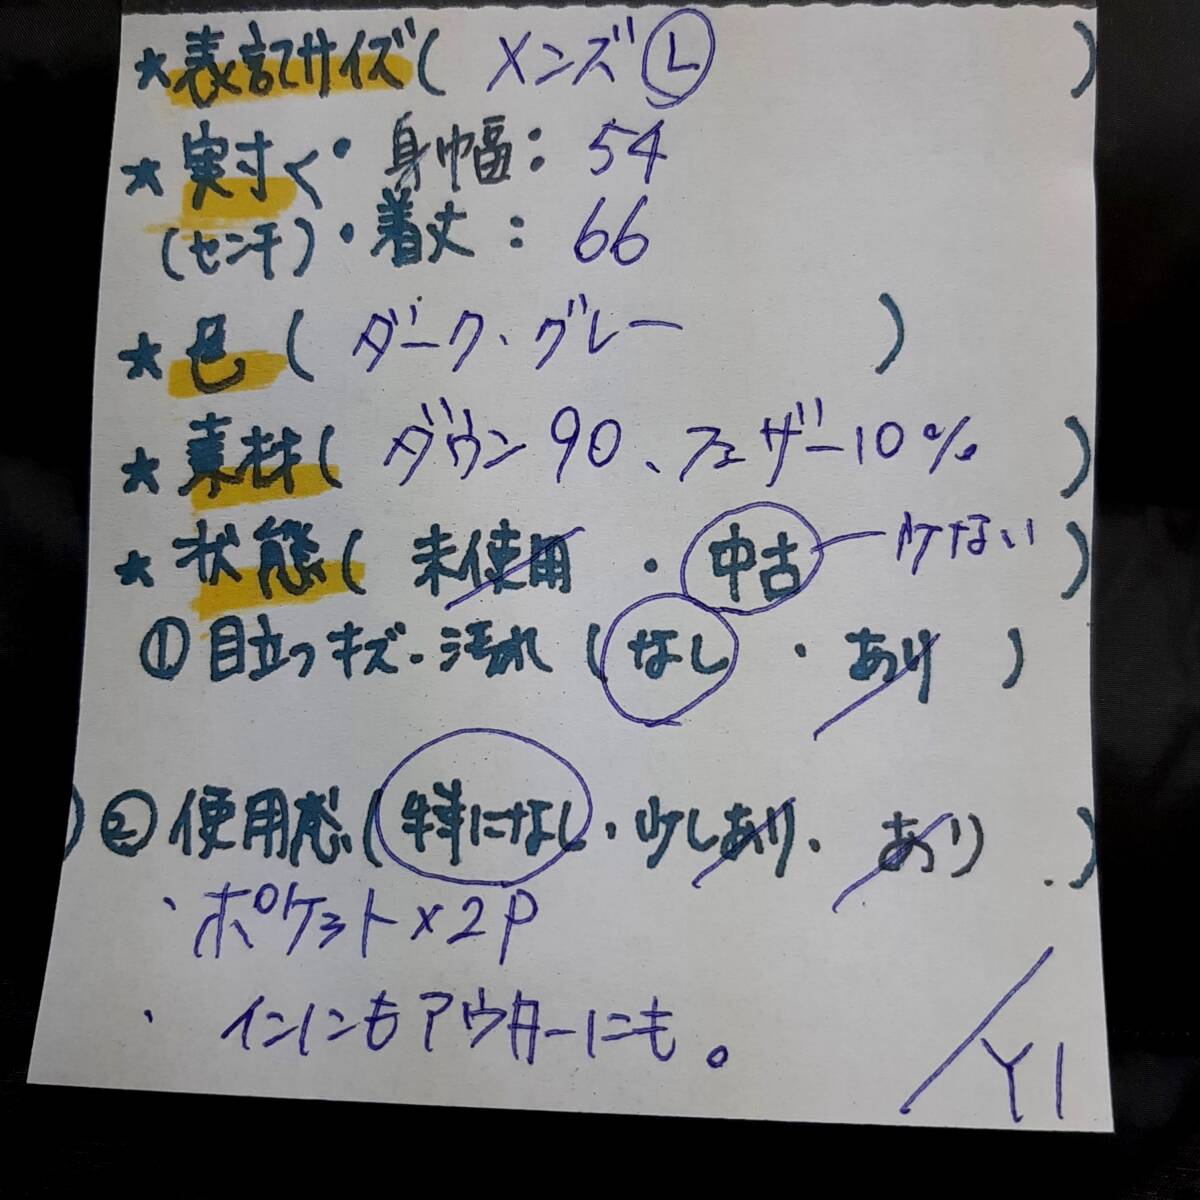 ★表記サイズ( メンズ Ⓛ )
★実寸く・身幅: 54
(センチ)・着丈: 66
★色( ダーク、グレー )
★素材( ダウン90、フェザー10% )
★状態( 未使用 ・ 中古 ー 少ない )
①目立つキズ・汚れ ( なし ・ あり )
) ②使用感( 特になし・少しあり・ あり . )
・ポケット×2P
・インにもアウターにも。
/Y1